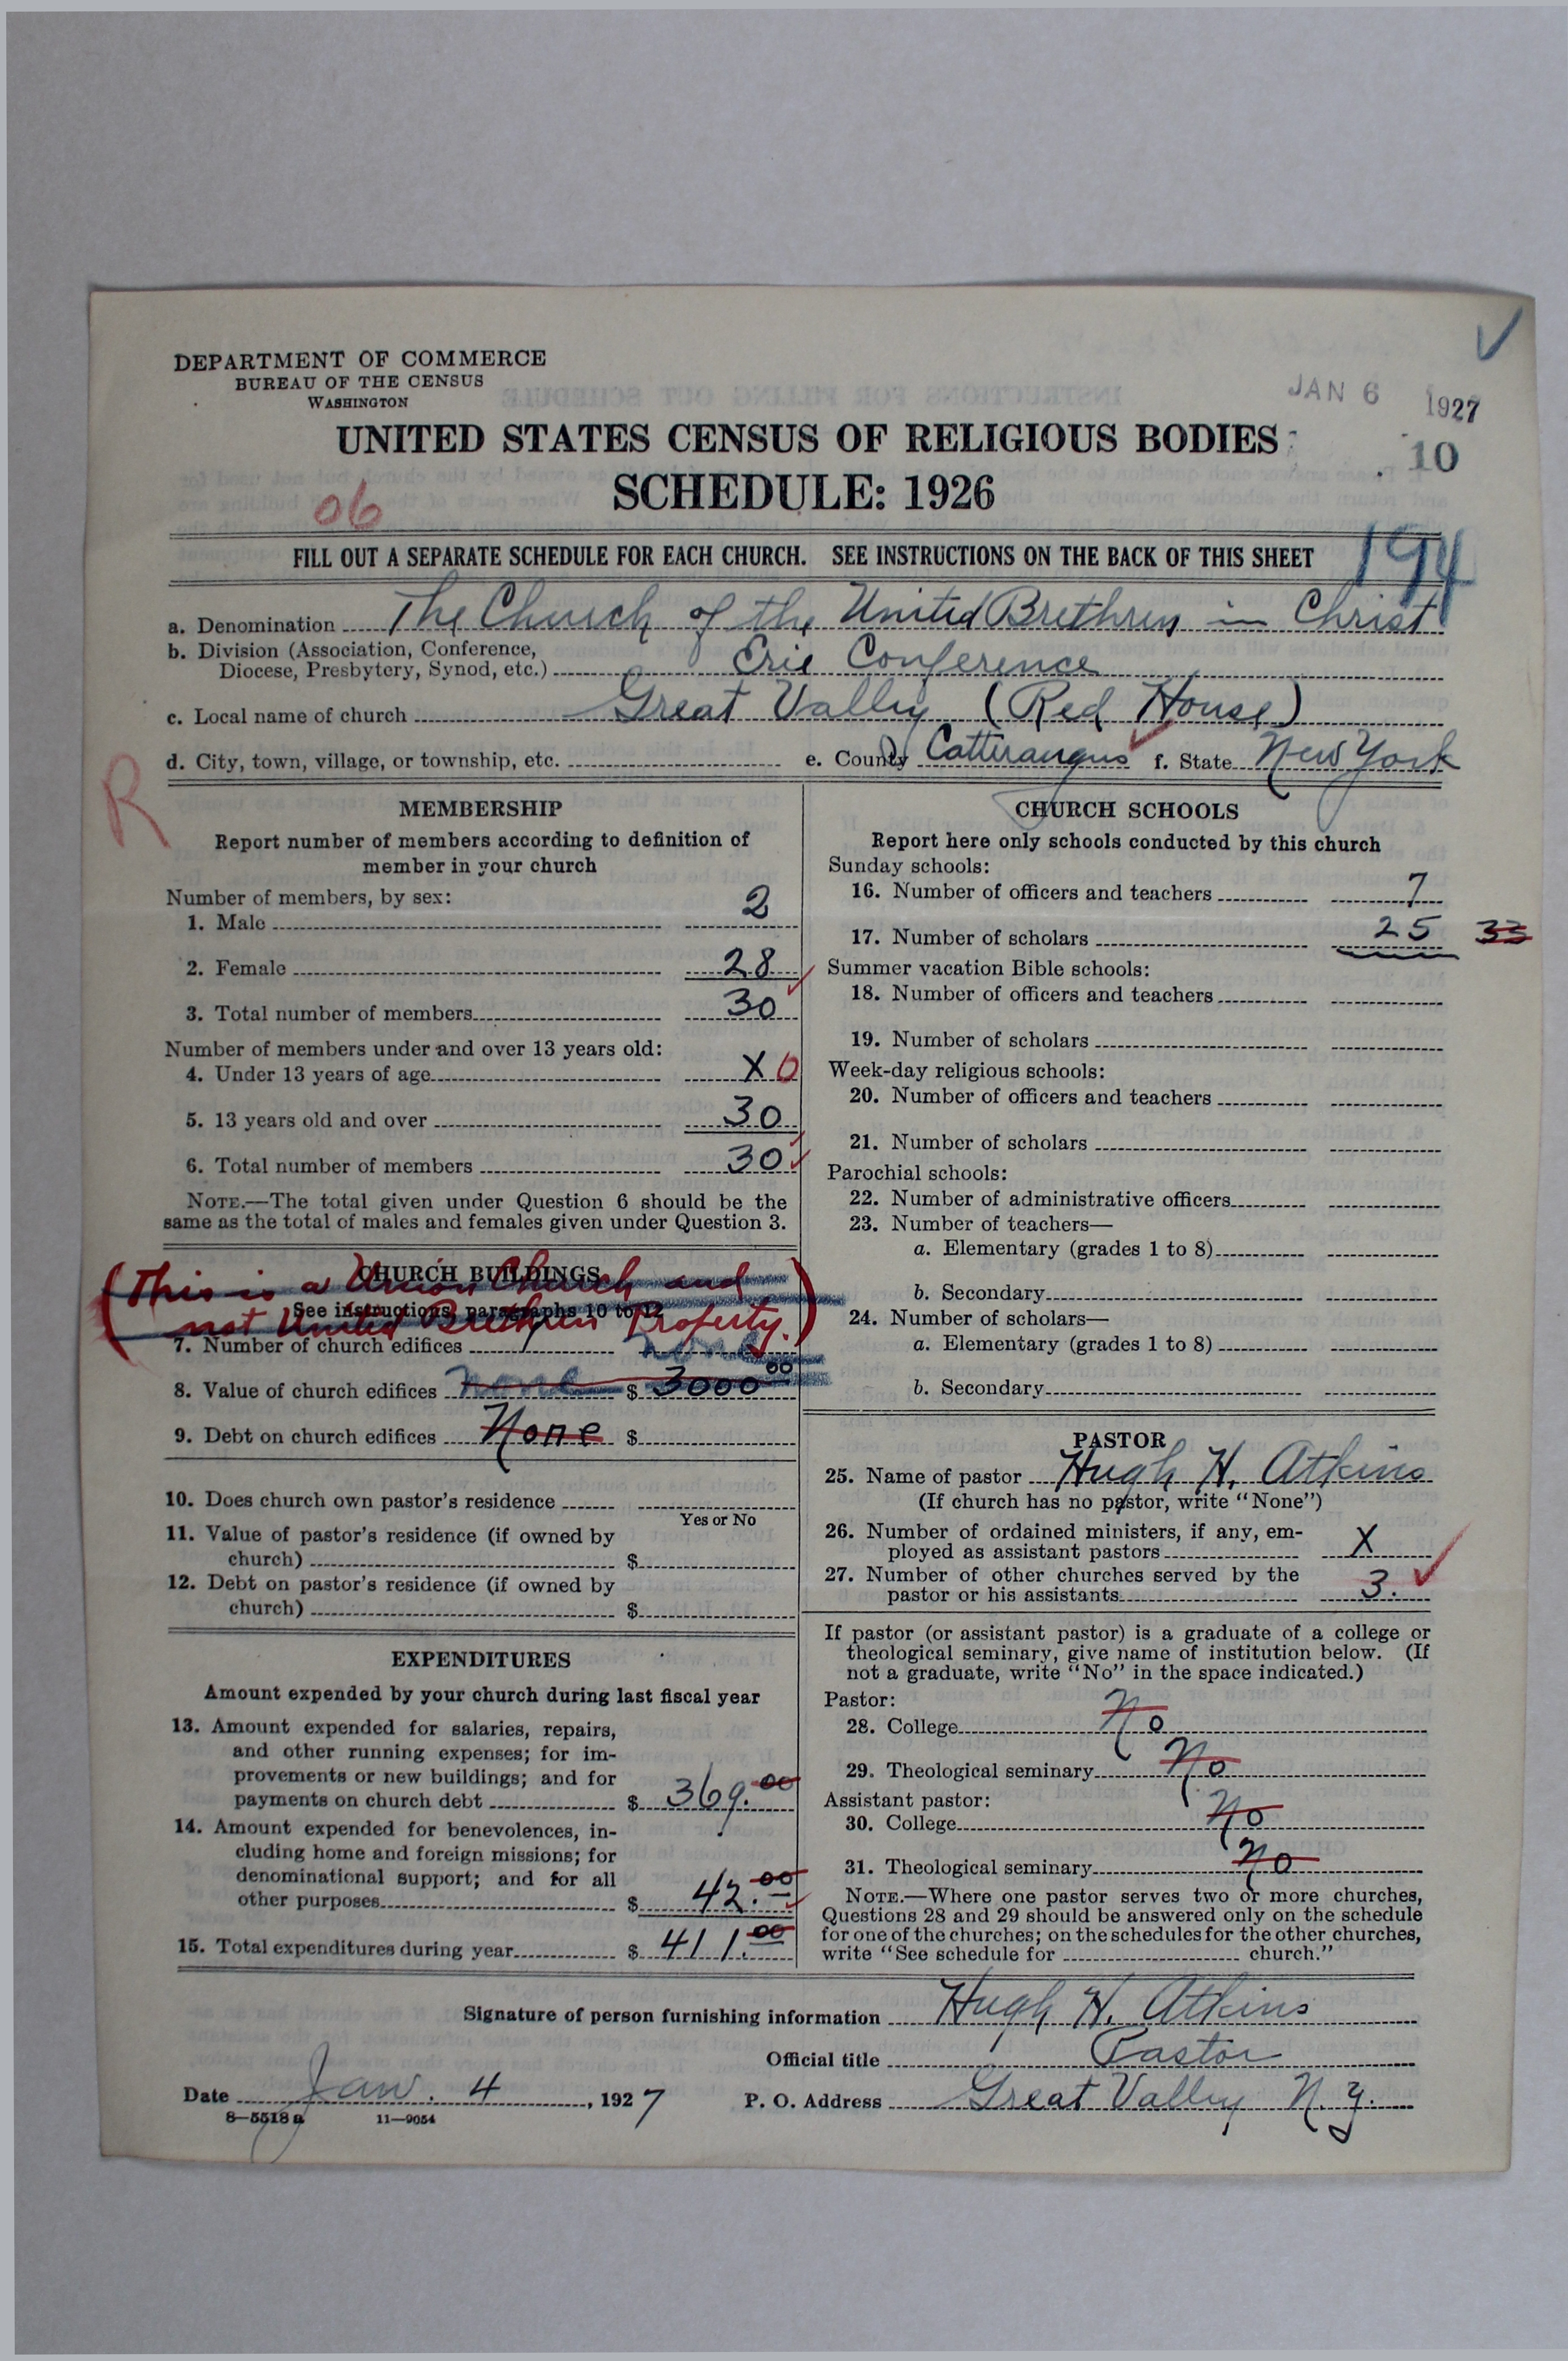 DEPARTMENT OF COMMERCE
BUREAU OF THE CENSUS
WASHINGTON
JAN 6 1927
UNITED STATES CENSUS OF RELIGIOUS BODIES
10
SCHEDULE: 1926
06
FILL OUT A SEPARATE SCHEDULE FOR EACH CHURCH. SEE INSTRUCTIONS ON THE BACK OF THIS SHEET
194
a. Denomination The Church of the United Brethren in Christ
b. Division (Association, Conference,
Diocese, Presbytery, Synod, etc.) Erie Conference
c. Local name of church Great Valley (Red House)
d. City, town, village, or township, etc. e. County Catteraugus f. State New York
R
MEMBERSHIP
Report number of members according to definition of
member in your church
Number of members, by sex:
1. Male 2
2. Female 28
3. Total number of members 30
Number of members under and over 13 years old:
4. Under 13 years of age X 0
5. 13 years old and over 30
6. Total number of members 30
NOTE.—The total given under Question 6 should be the
same as the total of males and females given under Question 3.
CHURCH BUILDINGS
(This is a Union Church and
See instructions, paragraphs 10 to 12
not United Brethren Property.)
7. Number of church edifices 1 none
8. Value of church edifices none $ 3000 00
9. Debt on church edifices None $
10. Does church own pastor's residence
Yes or No
11. Value of pastor's residence (if owned by
church) $
12. Debt on pastor's residence (if owned by
church) $
EXPENDITURES
Amount expended by your church during last fiscal year
13. Amount expended for salaries, repairs,
and other running expenses; for im-
provements or new buildings; and for
payments on church debt $ 369.00
14. Amount expended for benevolences, in-
cluding home and foreign missions; for
denominational support; and for all
other purposes $ 42.00
15. Total expenditures during year $ 411.00
CHURCH SCHOOLS
Report here only schools conducted by this church
Sunday schools:
16. Number of officers and teachers 7
17. Number of scholars 25 33
Summer vacation Bible schools:
18. Number of officers and teachers
19. Number of scholars
Week-day religious schools:
20. Number of officers and teachers
21. Number of scholars
Parochial schools:
22. Number of administrative officers
23. Number of teachers—
a. Elementary (grades 1 to 8)
b. Secondary
24. Number of scholars—
a. Elementary (grades 1 to 8)
b. Secondary
PASTOR
25. Name of pastor Hugh H. Atkins
(If church has no pastor, write "None")
26. Number of ordained ministers, if any, em-
ployed as assistant pastors X
27. Number of other churches served by the
pastor or his assistants 3.
If pastor (or assistant pastor) is a graduate of a college or
theological seminary, give name of institution below. (If
not a graduate, write "No" in the space indicated.)
Pastor:
28. College No
29. Theological seminary No
Assistant pastor:
30. College No
31. Theological seminary No
NOTE.—Where one pastor serves two or more churches,
Questions 28 and 29 should be answered only on the schedule
for one of the churches; on the schedules for the other churches,
write "See schedule for church."
Signature of person furnishing information Hugh H. Atkins
Official title Pastor
Date Jan. 4, 1927 P. O. Address Great Valley N.Y.
8—5518 a 11—9054